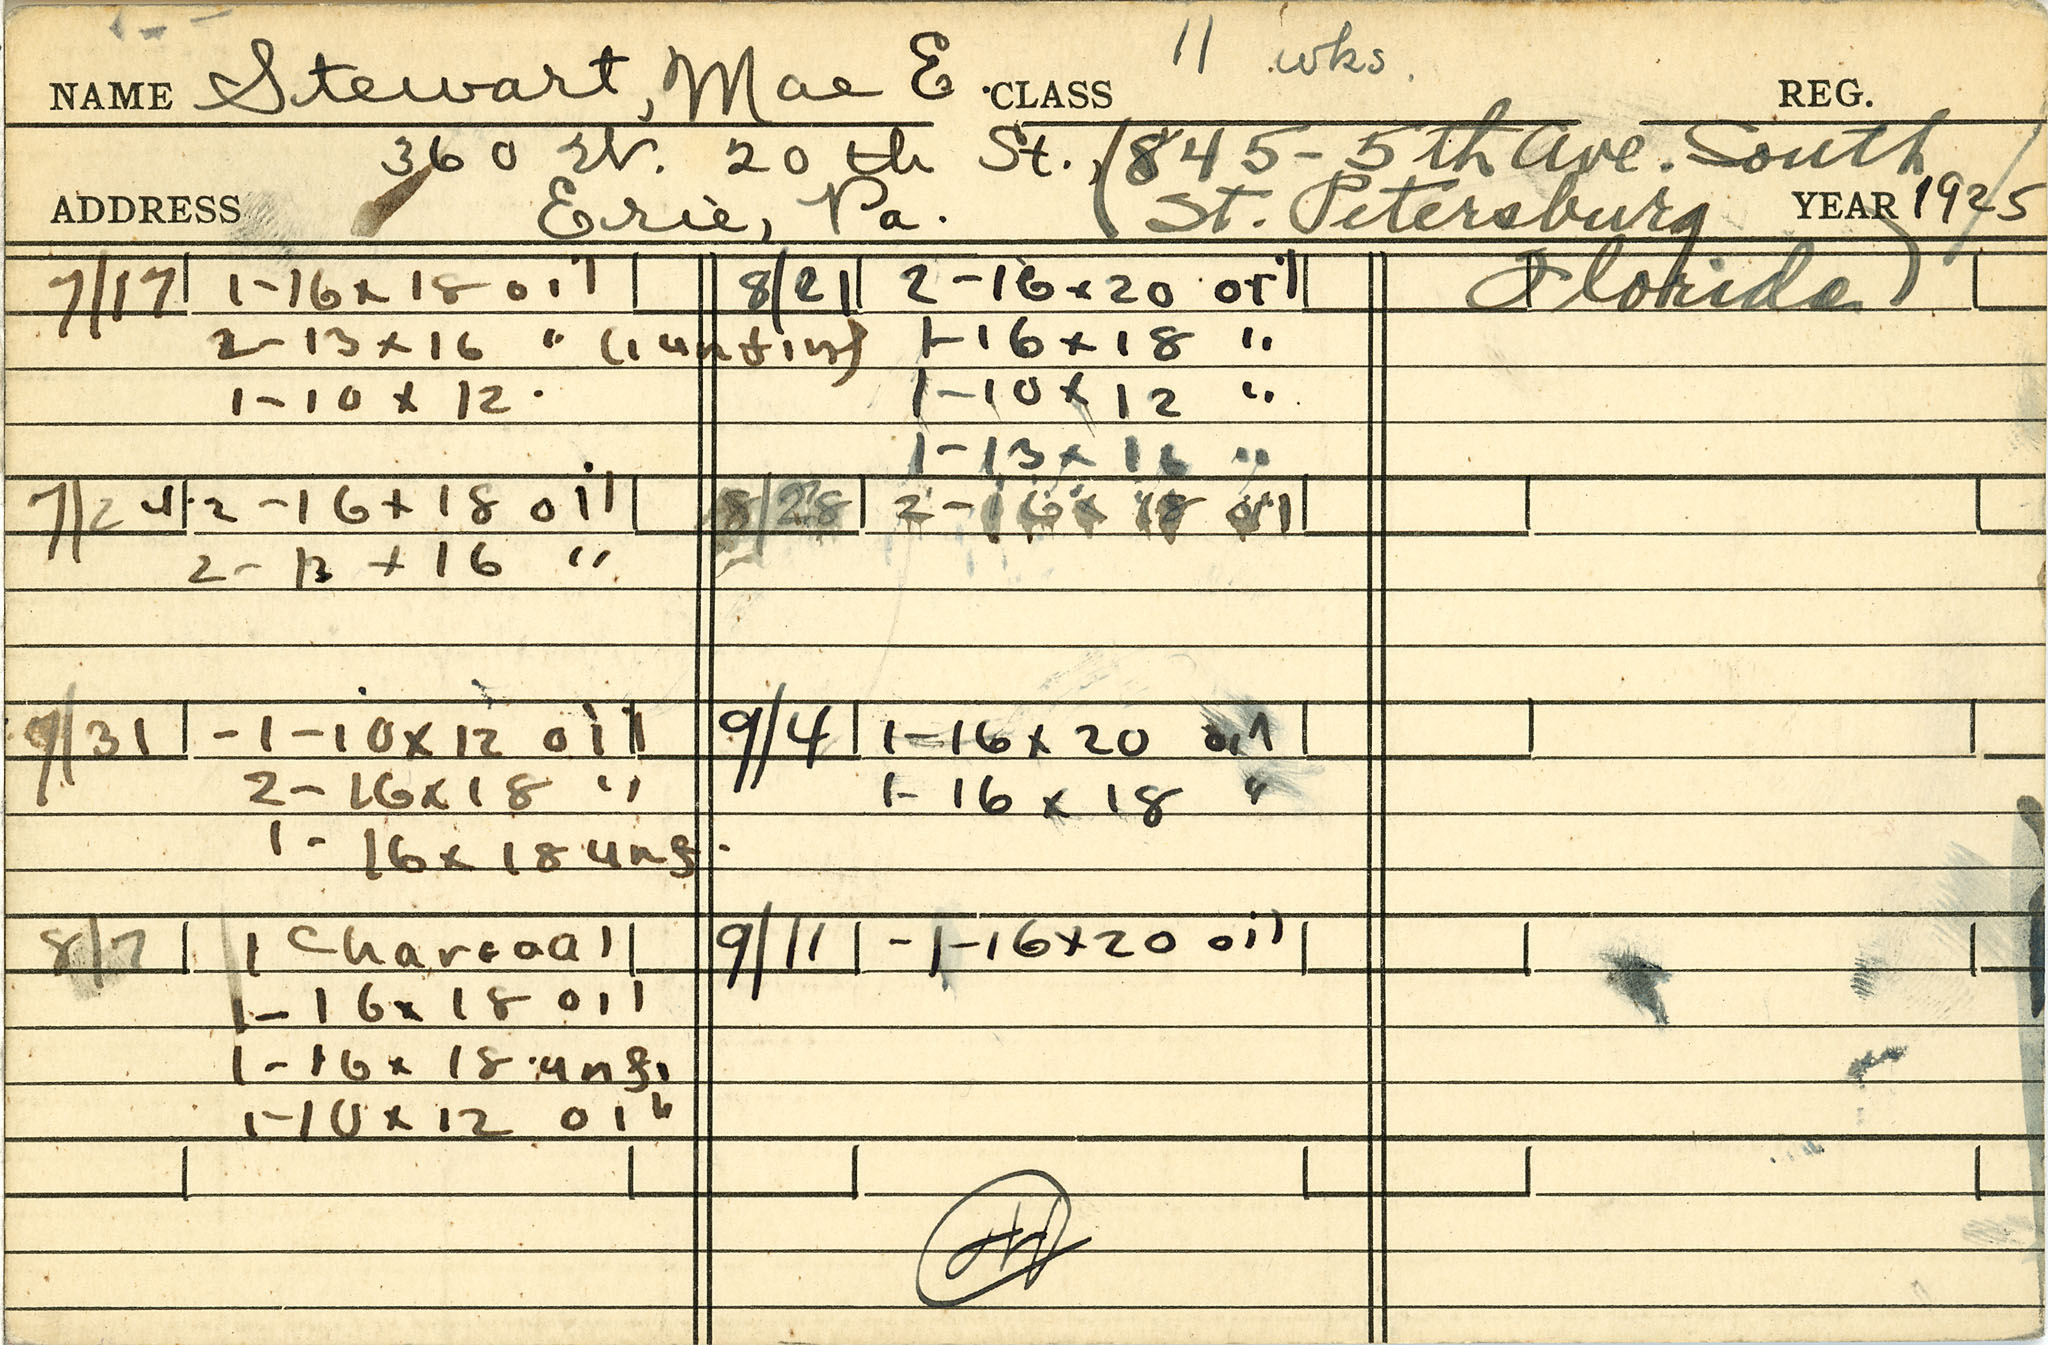 NAME Stewart, Mae E. CLASS 11 wks. REG.
360 W. 20th St., (845-5th Ave. South
ADDRESS Erie, Pa. St. Petersburg YEAR 1925
Florida)
7/17 1-16x18 oil
2-13x16 "
1-10x12
7/24 2-16x18 oil
2-13x16 "
7/31 -1-10x12 oil
2-16x18 "
1-16x18 unf.
8/7 1 Charcoal
1-16x18 oil
1-16x18 unf.
1-10x12 oil
8/21 2-16x20 oil
1-16x18 "
1-10x12 "
1-13x16 "
8/28 2-16x18 oil
9/4 1-16x20 oil
1-16x18 "
9/11 -1-16x20 oil